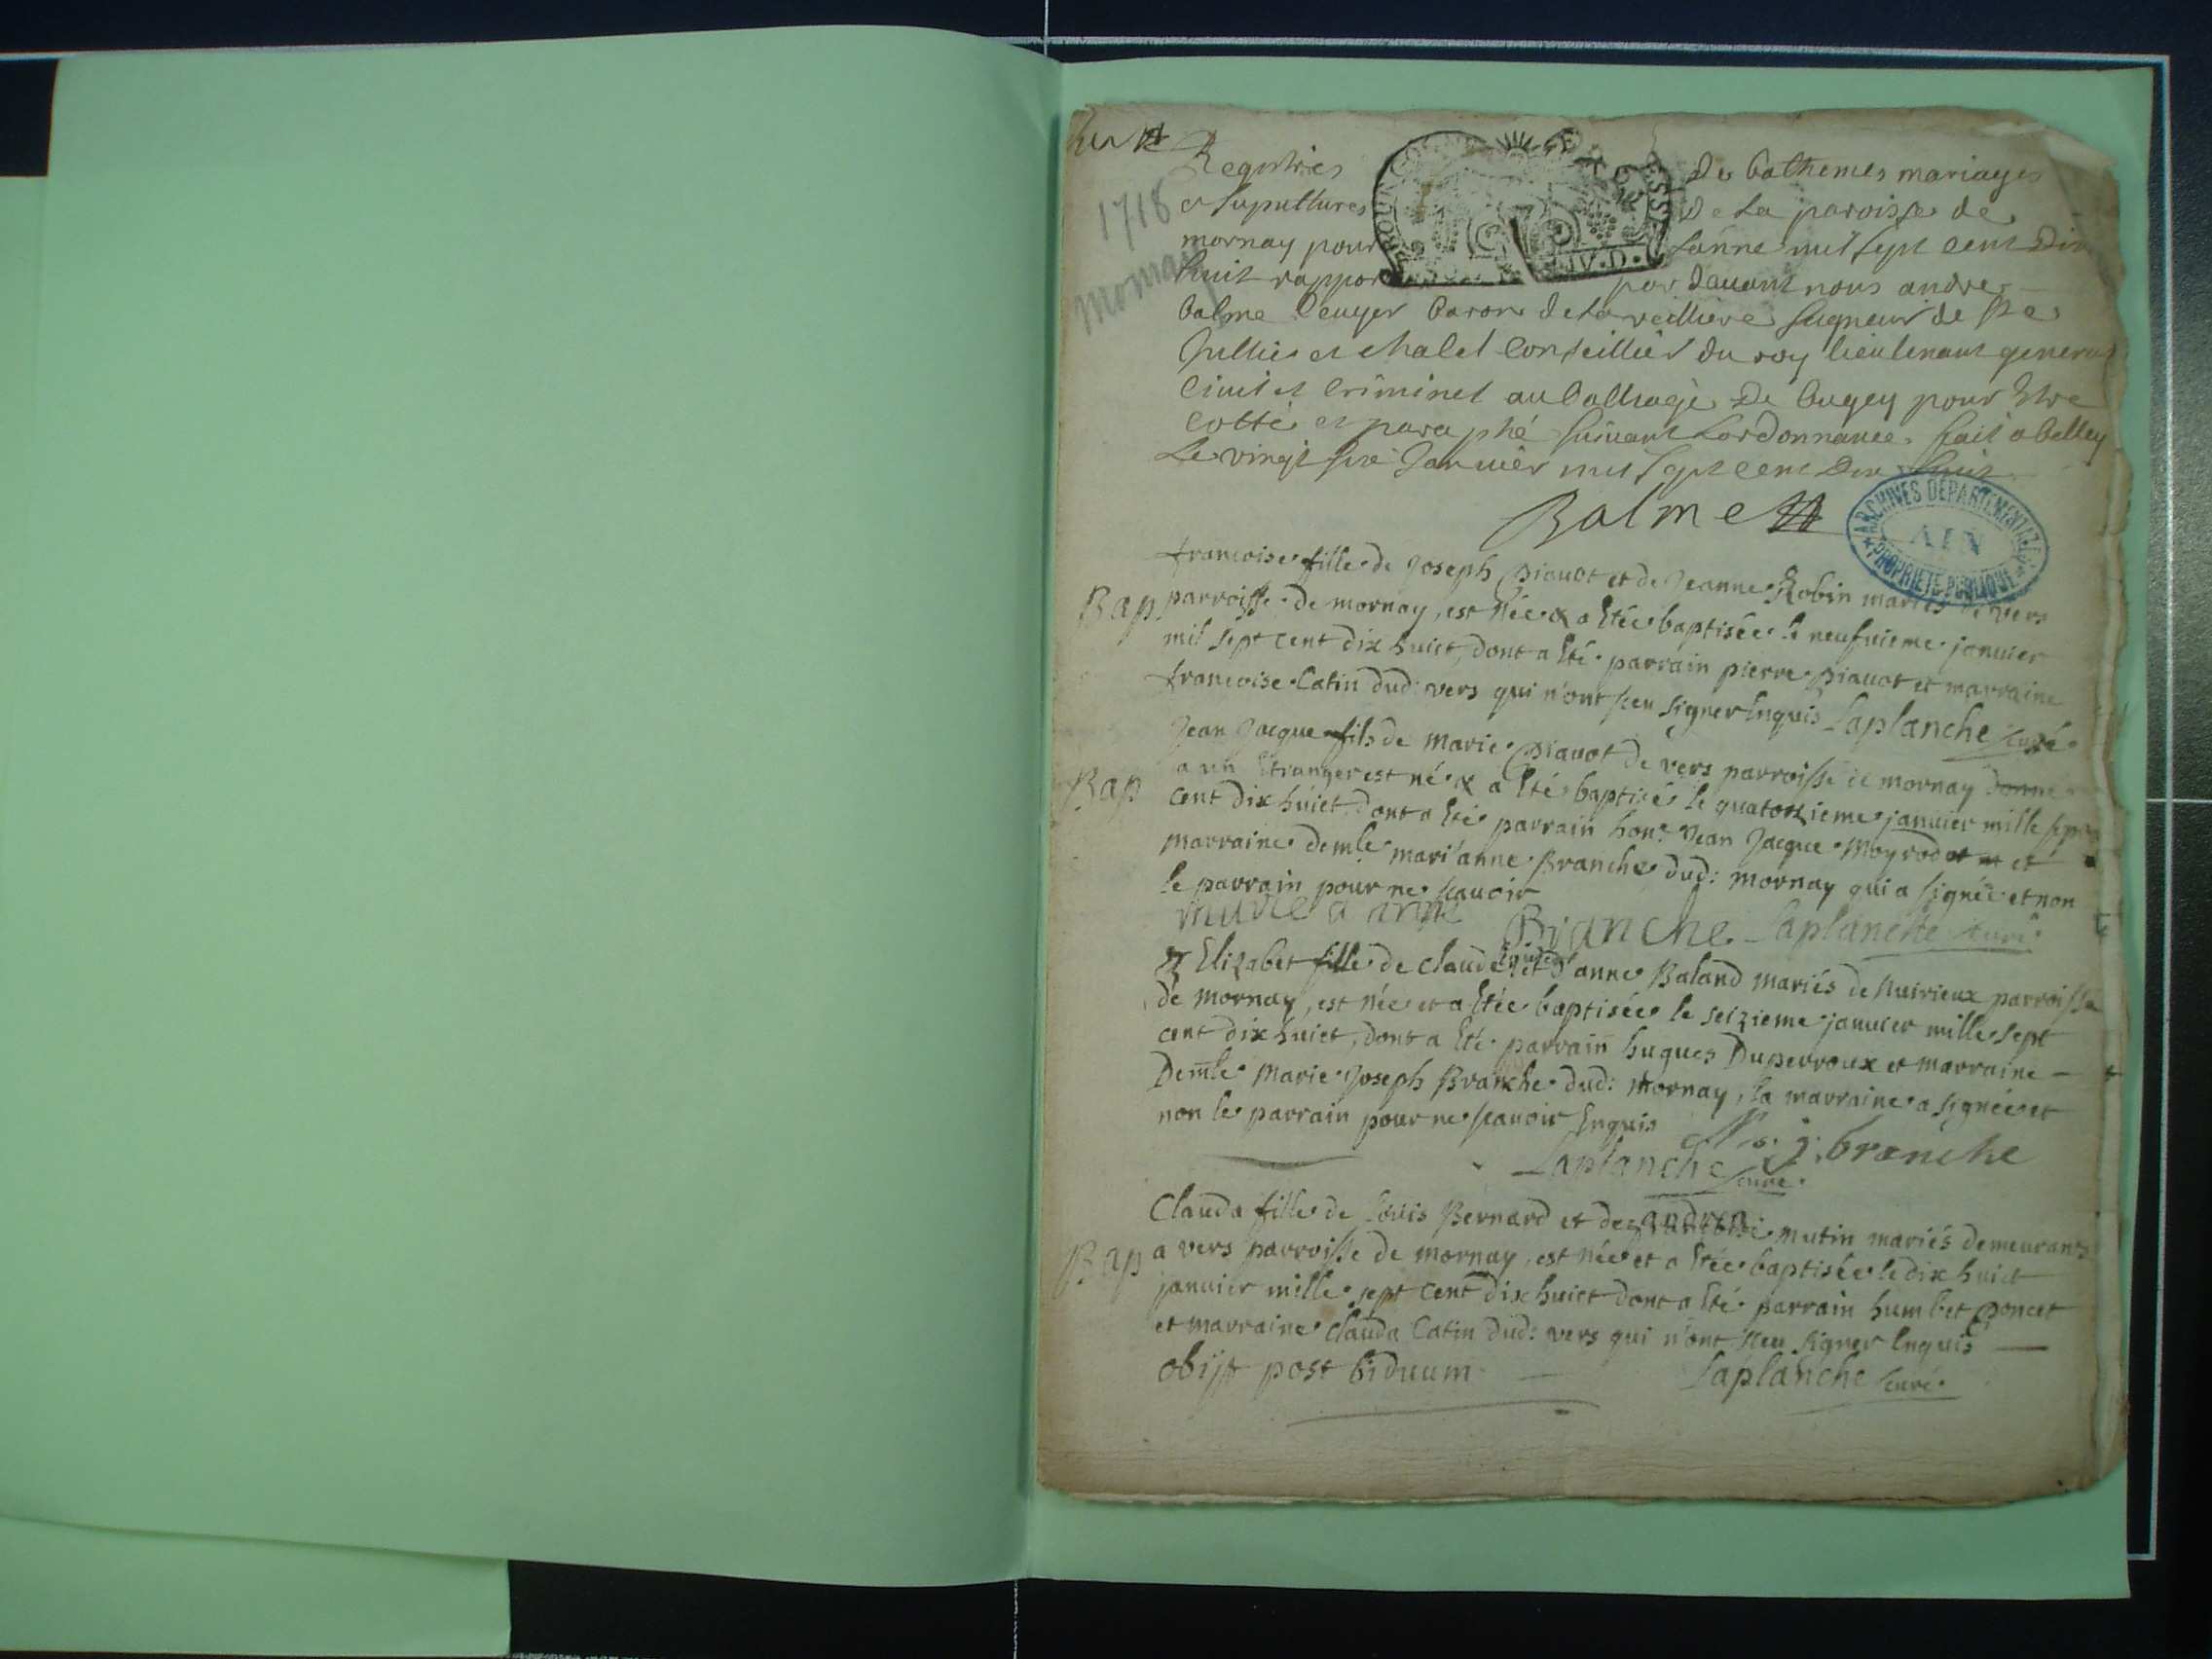 1718
mornay
Registres De bathemes mariages
et supultures De La paroisse de
mornay pour Lanne mil sept cent Dix
huit rappor par Devant nous andre
balme Ecuyer baron de Laveilliere seigneur de Ste
Jullie et chalet Conseillier du roy lieutenant general
Civil et Criminel au balliage De bugey pour Etre
Cotté et paraphé suivant Lordonnance. fait a belley
Le vingt six Janvier mil sept cent Dix huit
Balme
ARCHIVES DÉPARTEMENTALES
AIN
PROPRIÉTÉ PUBLIQUE
Bap.
francoise fille de Joseph piauot et de Jeanne Robin mariés de vers
parroisse de mornay, est née & a Etée baptisée le neufuieme januier
mil sept cent dix huict, dont a Eté parrain pierre piauot et marraine
francoise Catin dud: vers qui n'ont sceu signer Enquis Laplanche curé
Bap
Jean Jacque fils de Marie piauot de vers parroisse de mornay donné
a un Etranger est né & a Eté baptisé le quatorzieme januier mille sept
cent dix huict dont a Eté parrain hon. Jean Jacque Moyrod et
marraine demle mari'anne Branche dud: mornay qui a signée et non
le parrain pour ne scauoir
marie anne Branche Laplanche curé
Elizabet fille de claude et d'anne Baland mariés de Nuirieux parroisse
de mornay, est née et a Etée baptisée le seizieme januier mille sept
cent dix huict, dont a Eté parrain hugues Duperroux et marraine
Demle Marie Joseph Branche dud: mornay, la marraine a signée et
non le parrain pour ne scauoir Enquis
M. j. branche
Laplanche curé
Bap
Clauda fille de Louis Bernard et de andrea mutin mariés demeurants
a vers parroisse de mornay, est née et a Etée baptisée le dix huict
januier mille sept cent dix huict dont a Eté parrain humbet poncet
et marraine clauda Catin dud: vers qui n'ont sceu signer Enquis
obijt post biduum Laplanche curé